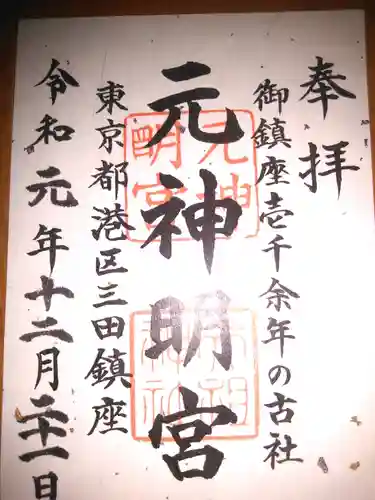 奉拝
御鎮座壱千余年の古社
元神明宮
東京都港区三田鎮座
令和元年十二月二十一日
元神明宮